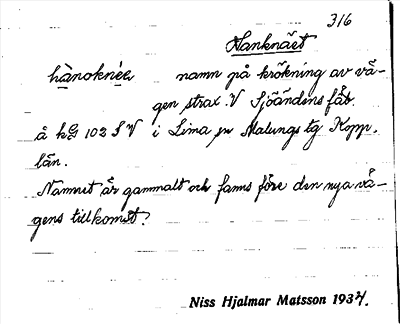 316
Hanknäet
hànoknée namn på krökning av vä-
gen strax V Sjöändens fäb.
å kG 102 S V i Lima sn Malungs tg Kopp.
län.
Namnet är gammalt och fanns före den nya vä-
gens tillkomst?
Niss Hjalmar Matsson 1934.